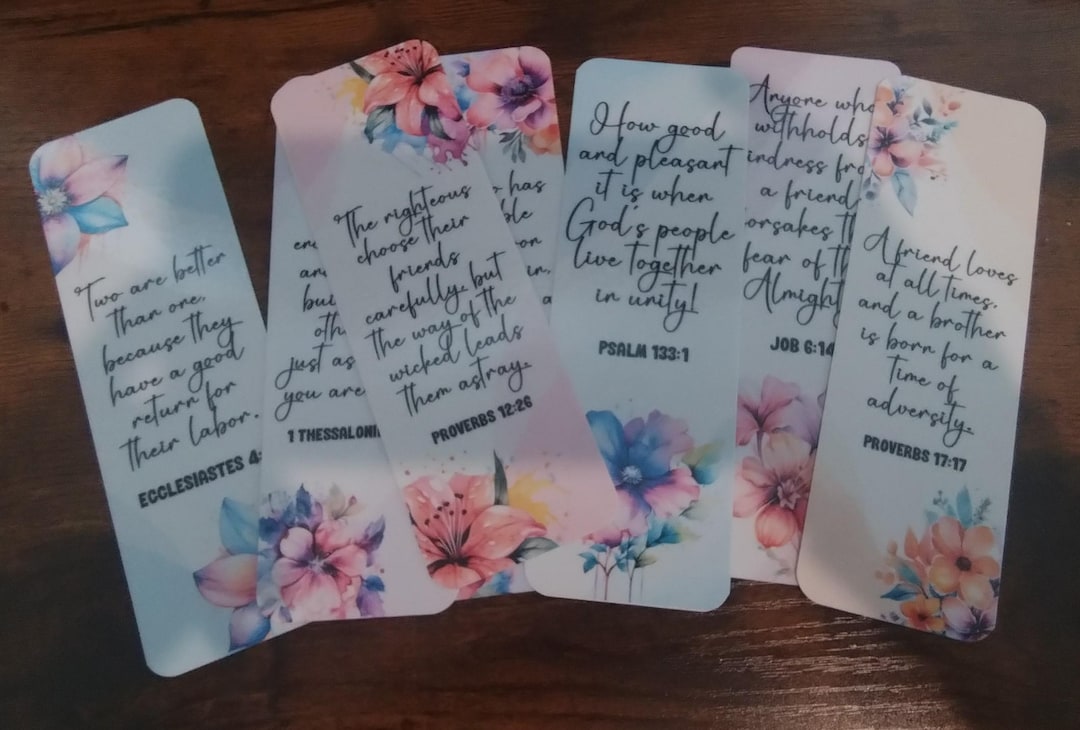 Two are better
than one,
because they
have a good
return for
their labor.
ECCLESIASTES 4:
an
bui
oth
just as
you are
1 THESSALONI
The righteous
choose their
friends
carefully, but
the way of the
wicked leads
them astray.
PROVERBS 12:26
has
ble
on
in,
a
How good
and pleasant
it is when
God's people
live together
in unity!
PSALM 133:1
Anyone who
withholds
indness fro
a friend
orsakes th
fear of th
Almighty
JOB 6:14
A friend loves
at all times,
and a brother
is born for a
time of
adversity.
PROVERBS 17:17